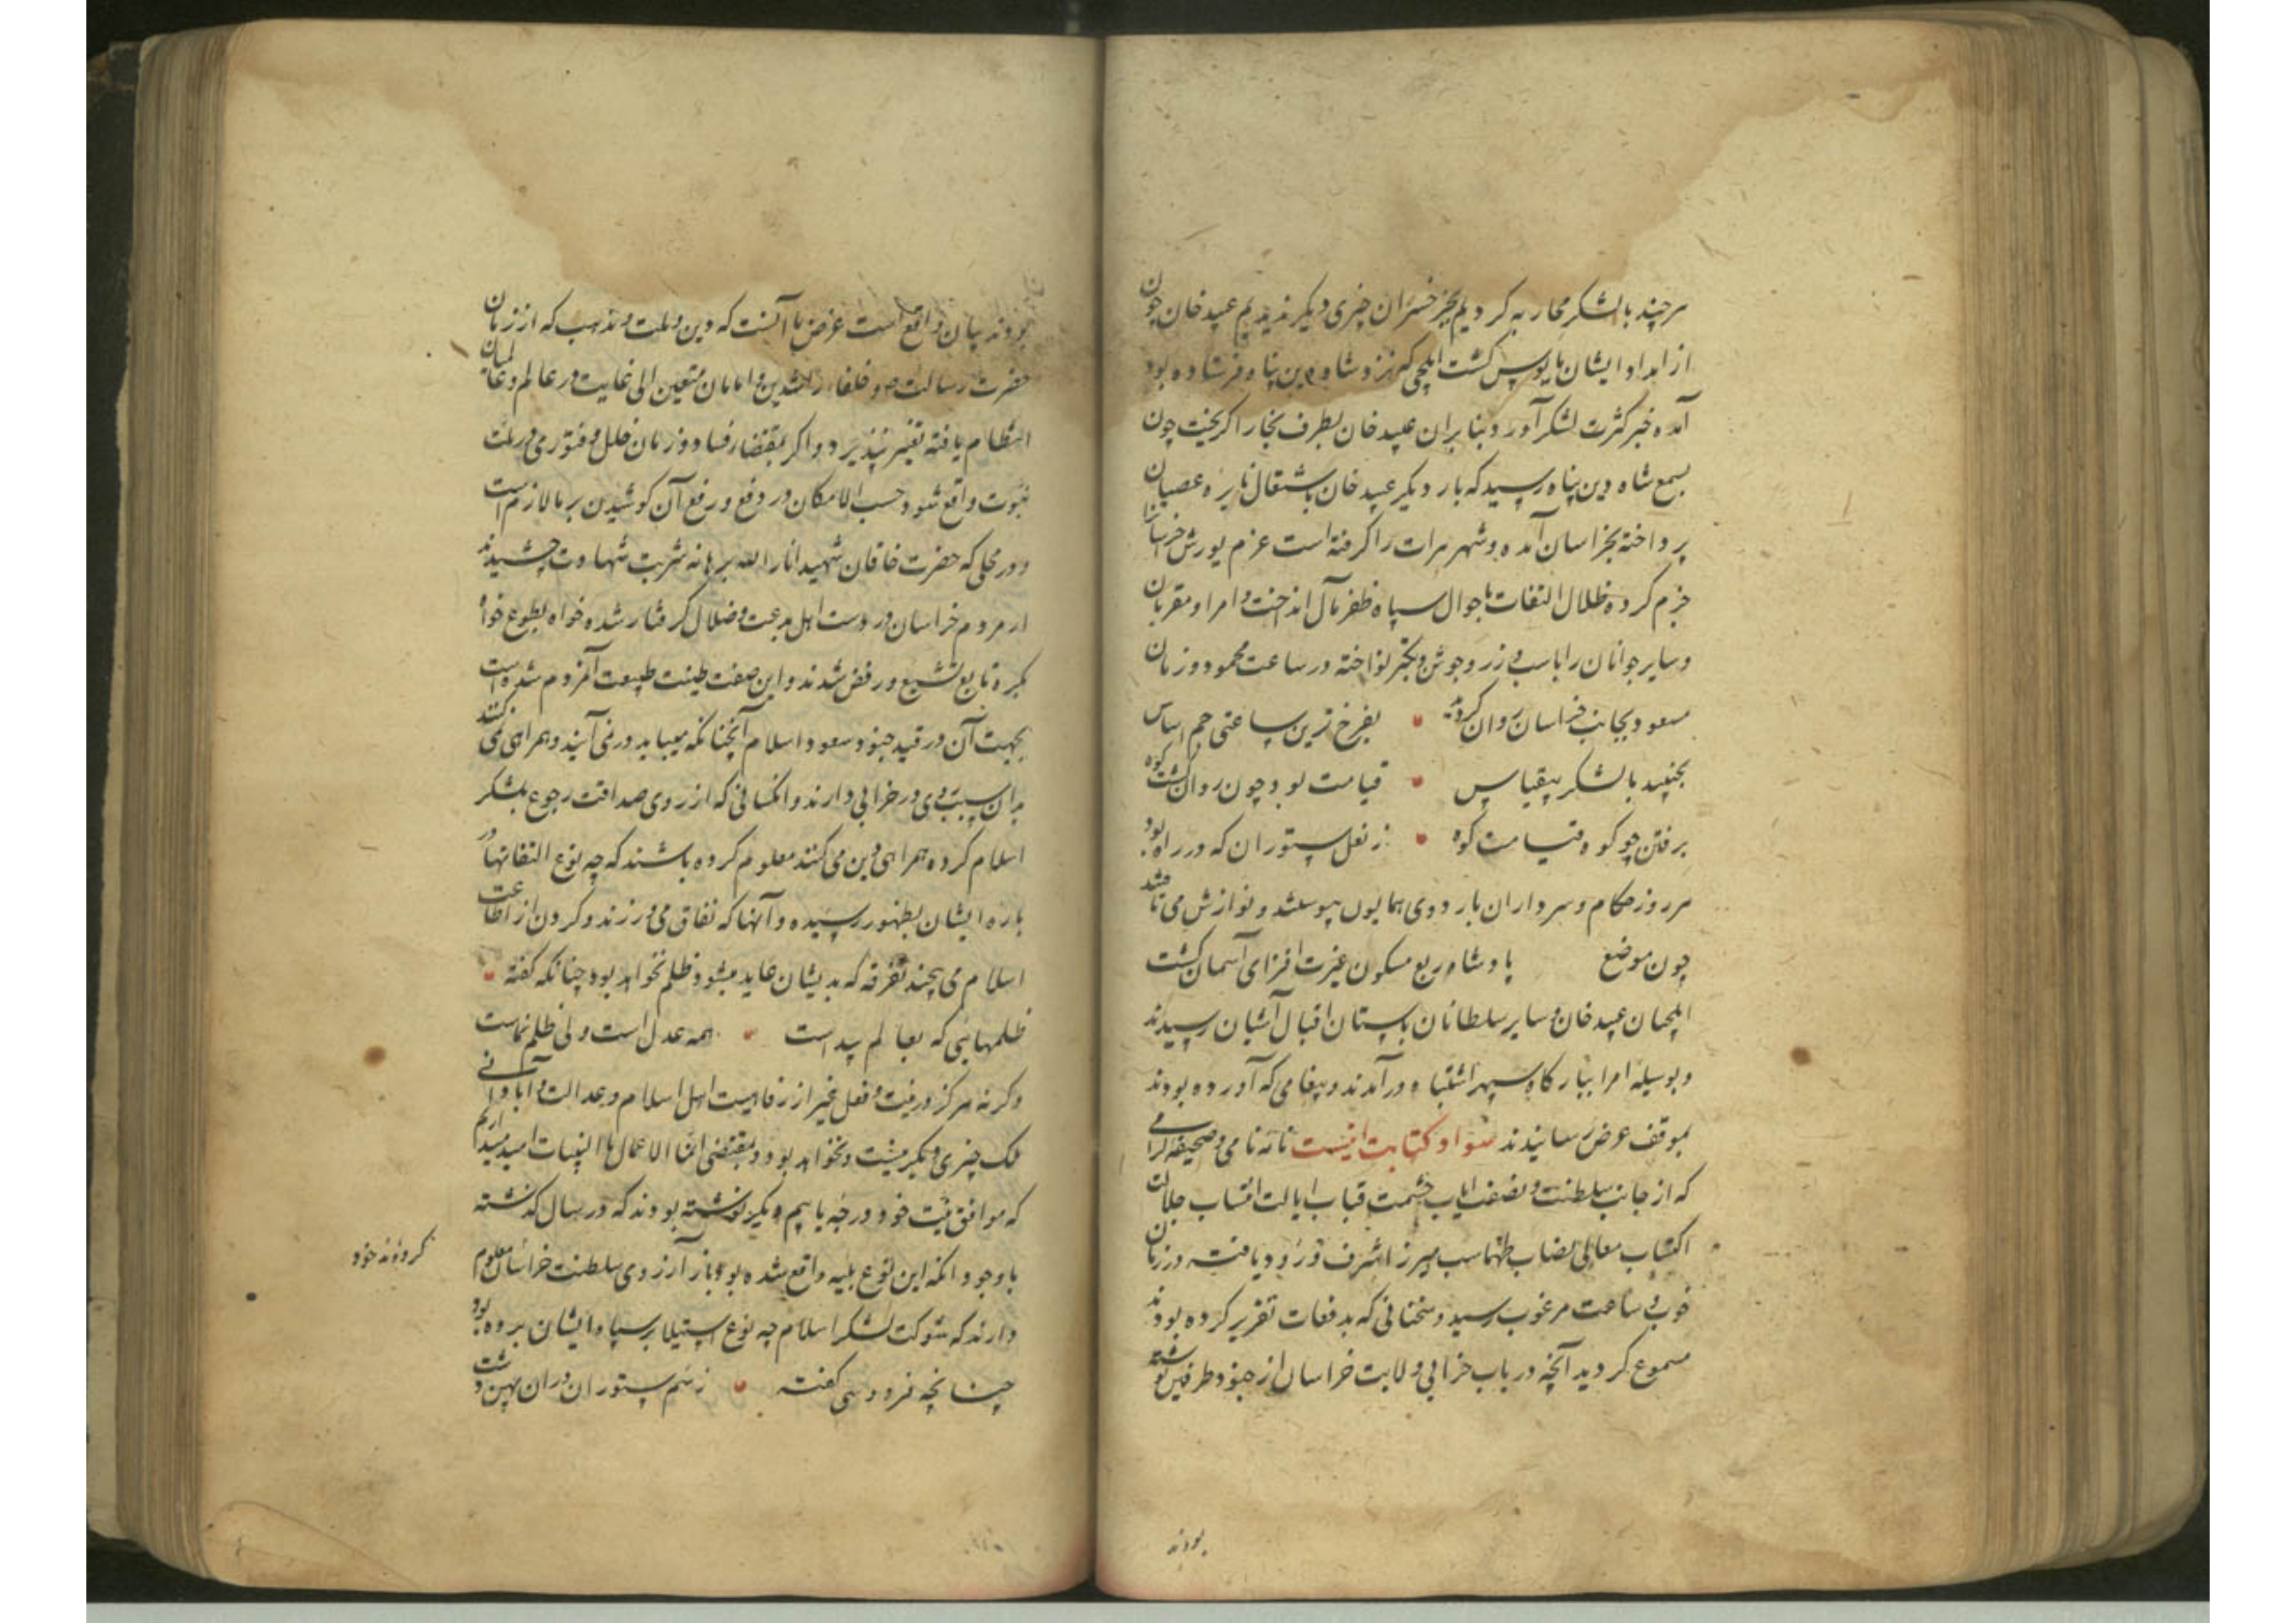 هرچند بالشکر محاربه کردیم بجز خسران چیزی دیگر ندیدیم عبید خان چون
از امداد ایشان مایوس گشت ایلچی که نزد شاه دین پناه فرستاده بود
آمده خبر کثرت لشکر آورد بنابران عبید خان بطرف بخارا گریخت چون
بسمع شاه دین پناه رسید که بار دیگر عبید خان باشتعال نایره عصیان
پرداخته بخراسان آمده و شهر هرات را گرفته است عزم یورش خراسان
جزم کرده ظلال التفات باحوال سپاه ظفر مآل انداخت و امرا و مقربان
و سایر جوانان را باسب و زر و جوشن و بکتر نواخته در ساعت محمود و زمان
مسعود بجانب خراسان روان کردید بفرخ ترین ساعتی جم اساس
بجنبید بالشکر بیقیاس قیامت بود چون روان گشت کوه
برفتن چو کوه و قیامت کوه ز نعل ستوران که در راه بود
هر روز حکام و سرداران باردوی همایون پیوستند و نوازش می یافتند
چون موضع پادشاه ربع مسکون غیرت افزای آسمان گشت
ایلچیان عبید خان و سایر سلطانان باستان اقبال آشیان رسیدند
و بوسیله امرا ببارکاه سپهر اشتباه درآمدند و پیغامی که آورده بودند
بموقف عرض رسانیدند سواد کتابت اینست نامه نامی و صحیفه گرامی
که از جانب سلطنت و نصفت ایاب حشمت قباب ایالت انتساب جلالت
اکتساب معالی نصاب طهماسب میرزا شرف ورود یافت در زمان
خوب و ساعت مرغوب رسید و سخنانی که بدفعات تقریر کرده بودند
مسموع کردید آنچه در باب خرابی ولایت خراسان از جنود طرفین نوشته
بودند
بودند بیان واقع است غرض ما آنست که دین و ملت و مذهب که از زمان
حضرت رسالت و خلفاء راشدین و امامان متعین الی غایت در عالم و عالمیان
انتظام یافته تغییر نپذیرد و اگر بمقتضاء فساد زمان خلل و فتوری در ملت
نبوت واقع شود حسب الامکان در دفع و رفع آن کوشیدن بر ما لازم است
و در محلی که حضرت خاقان شهید انار الله برهانه شربت شهادت چشیدند
ار مردم خراسان در دست اهل بدعت و ضلال گرفتار شده خواه بطوع خواه
بکره تابع تشیع و رفض شدند و این صفت طینت طبیعت آمردم شده است
بجهت آن در قید جنود مسعود اسلام آنچنانکه میباید در نمی آیند و همراهی نمی کنند
بدان سبب روی در خرابی دارند و انکسانی که از روی صداقت رجوع بلشکر
اسلام کرده همراهی دین می کنند معلوم کرده باشند که چه نوع التفاتها در
باره ایشان بظهور رسیده و آنها که نفاق می ورزند و کردن از اطاعت
اسلام می پیچند تفرقه که بدیشان عاید میشود ظلم نخواهد بود چنانکه گفته
ظلمهایی که بعالم پیداست همه عدل است ولی ظلم نماست
و کرنه هرگز در نیت و فعل غیر از رفاهیت اهل اسلام و عدالت و آبادانی
ملک چیزی دیگر نیست و نخواهد بود و بمقتضی انما الاعمال بالنیات امید میدارم
که موافق نیت خود درجه یابیم دیگر نوشته بودند که در سال گذشته
باوجود انکه این نوع بلیه واقع شده بود باز آرزوی سلطنت خراسان معلوم
کرده‌اند خود
دارند که شوکت لشکر اسلام چه نوع استیلا بر سپاه ایشان برده بود
چنانچه فردوسی گفته ز سم ستوران دران پهن دشت